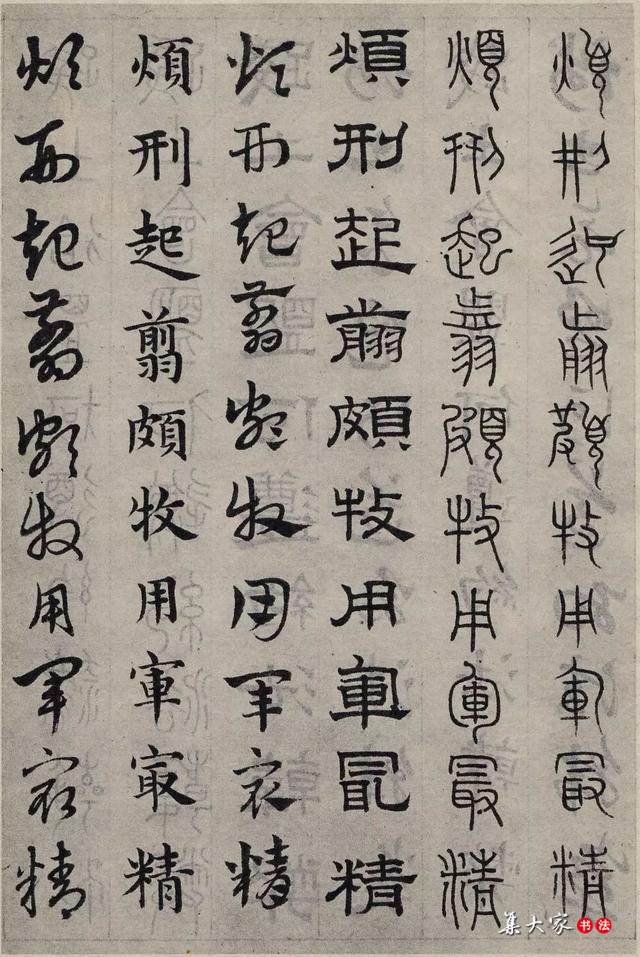 煩刑起翦頗牧用軍最精
煩刑起翦頗牧用軍最精
煩刑起翦頗牧用軍最精
煩刑起翦頗牧用軍最精
煩刑起翦頗牧用軍最精
煩刑起翦頗牧用軍最精
集大家書法